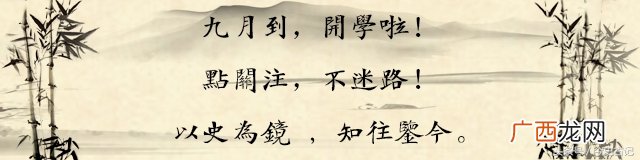 九月到，開學啦！
點關注，不迷路！
以史為鏡，知往鑒今。
广西龙网